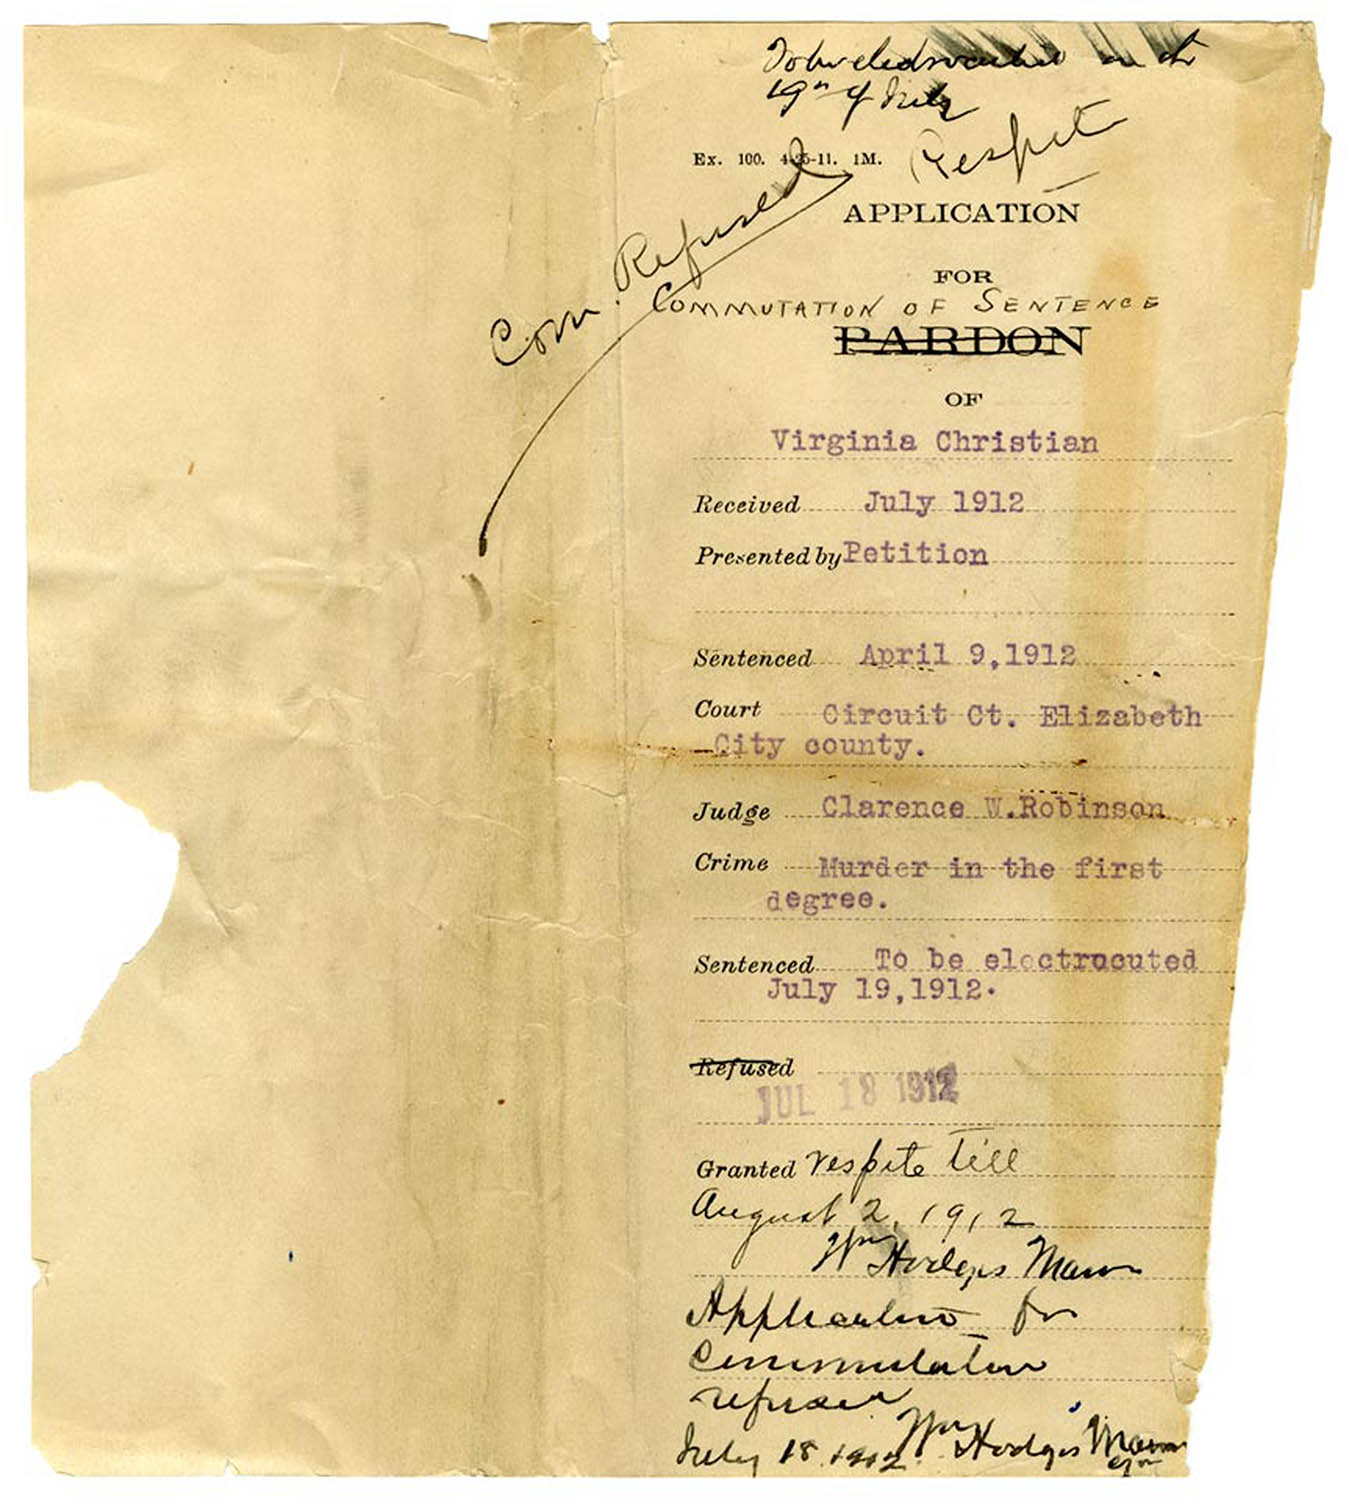 To be electrocuted on the
19th of July
Ex. 100. 4-25-11. 1M.
Respite
Com. Refused
APPLICATION
FOR
COMMUTATION OF SENTENCE
PARDON
OF
Virginia Christian
Received July 1912
Presented by Petition
Sentenced April 9,1912
Court Circuit Ct. Elizabeth
City county.
Judge Clarence W.Robinson
Crime Murder in the first
degree.
Sentenced To be electrocuted
July 19,1912.
Refused
JUL 18 1912
Granted respite till
August 2, 1912
Wm Hodges Mann
Application for
Commutation
refused
July 18, 1912. Wm Hodges Mann